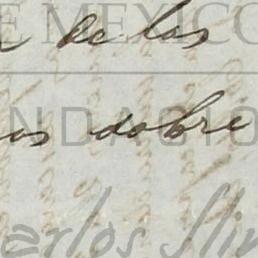 E MEXICO
de las
NDACIO
os dobre
arlos Slim